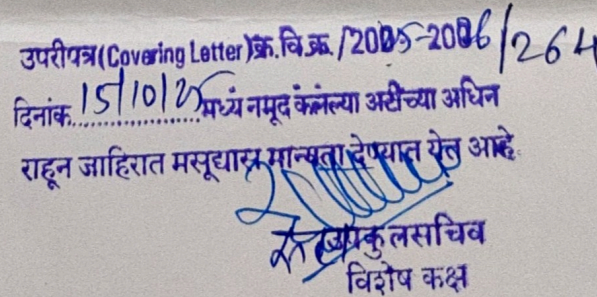 उपरीपत्र (Covering Letter) क्र. वि.क्र. /2025-2026/264
दिनांक 15/10/25 मध्ये नमूद केलेल्या अटीच्या अधिन
राहून जाहिरात मसूद्यास मान्यता देण्यात येत आहे.
उपकुलसचिव
विशेष कक्ष